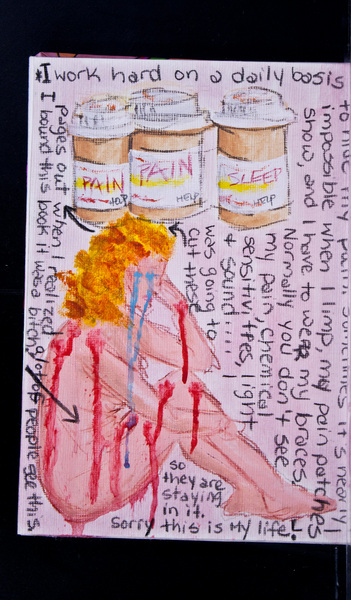 *I work hard on a daily basis
to hide my pain, sometimes it's nearly
impossible when I limp, my pain patches
show, and I have to wear my braces.
Normally you don't see
my pain, chemical
sensitivities, light
+ sound....
PAIN
HELP
PAIN
HELP
SLEEP
HELP
was going to
cut these
pages out when I realized
I bound this book it was a bitch! people see this
so
they are
staying
in it.
sorry this is my life!